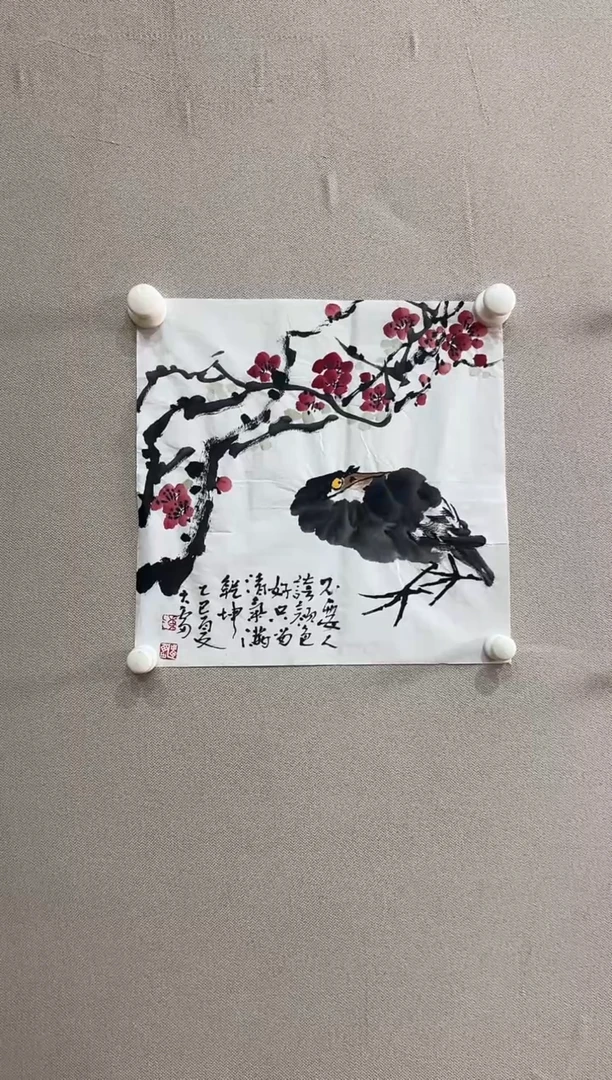 不要人
誇顏色
好只留
清氣滿
乾坤
乙巳夏